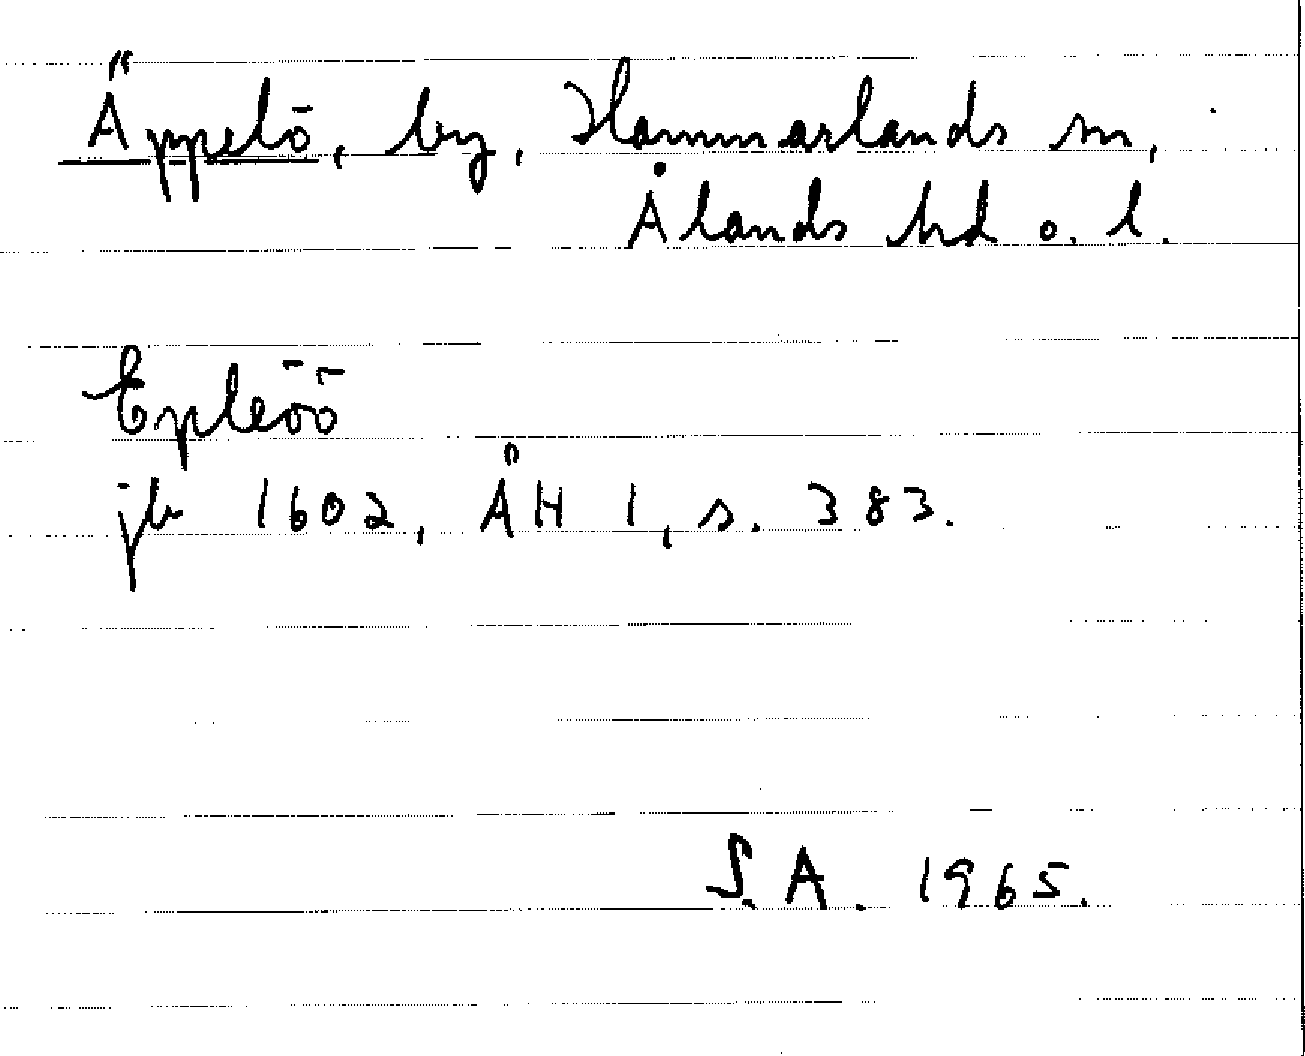 Äppelö, by, Hammarlands sn,
Ålands hd o. l.
Epleöö
jb 1602, ÅH 1, s. 383.
S.A. 1965.